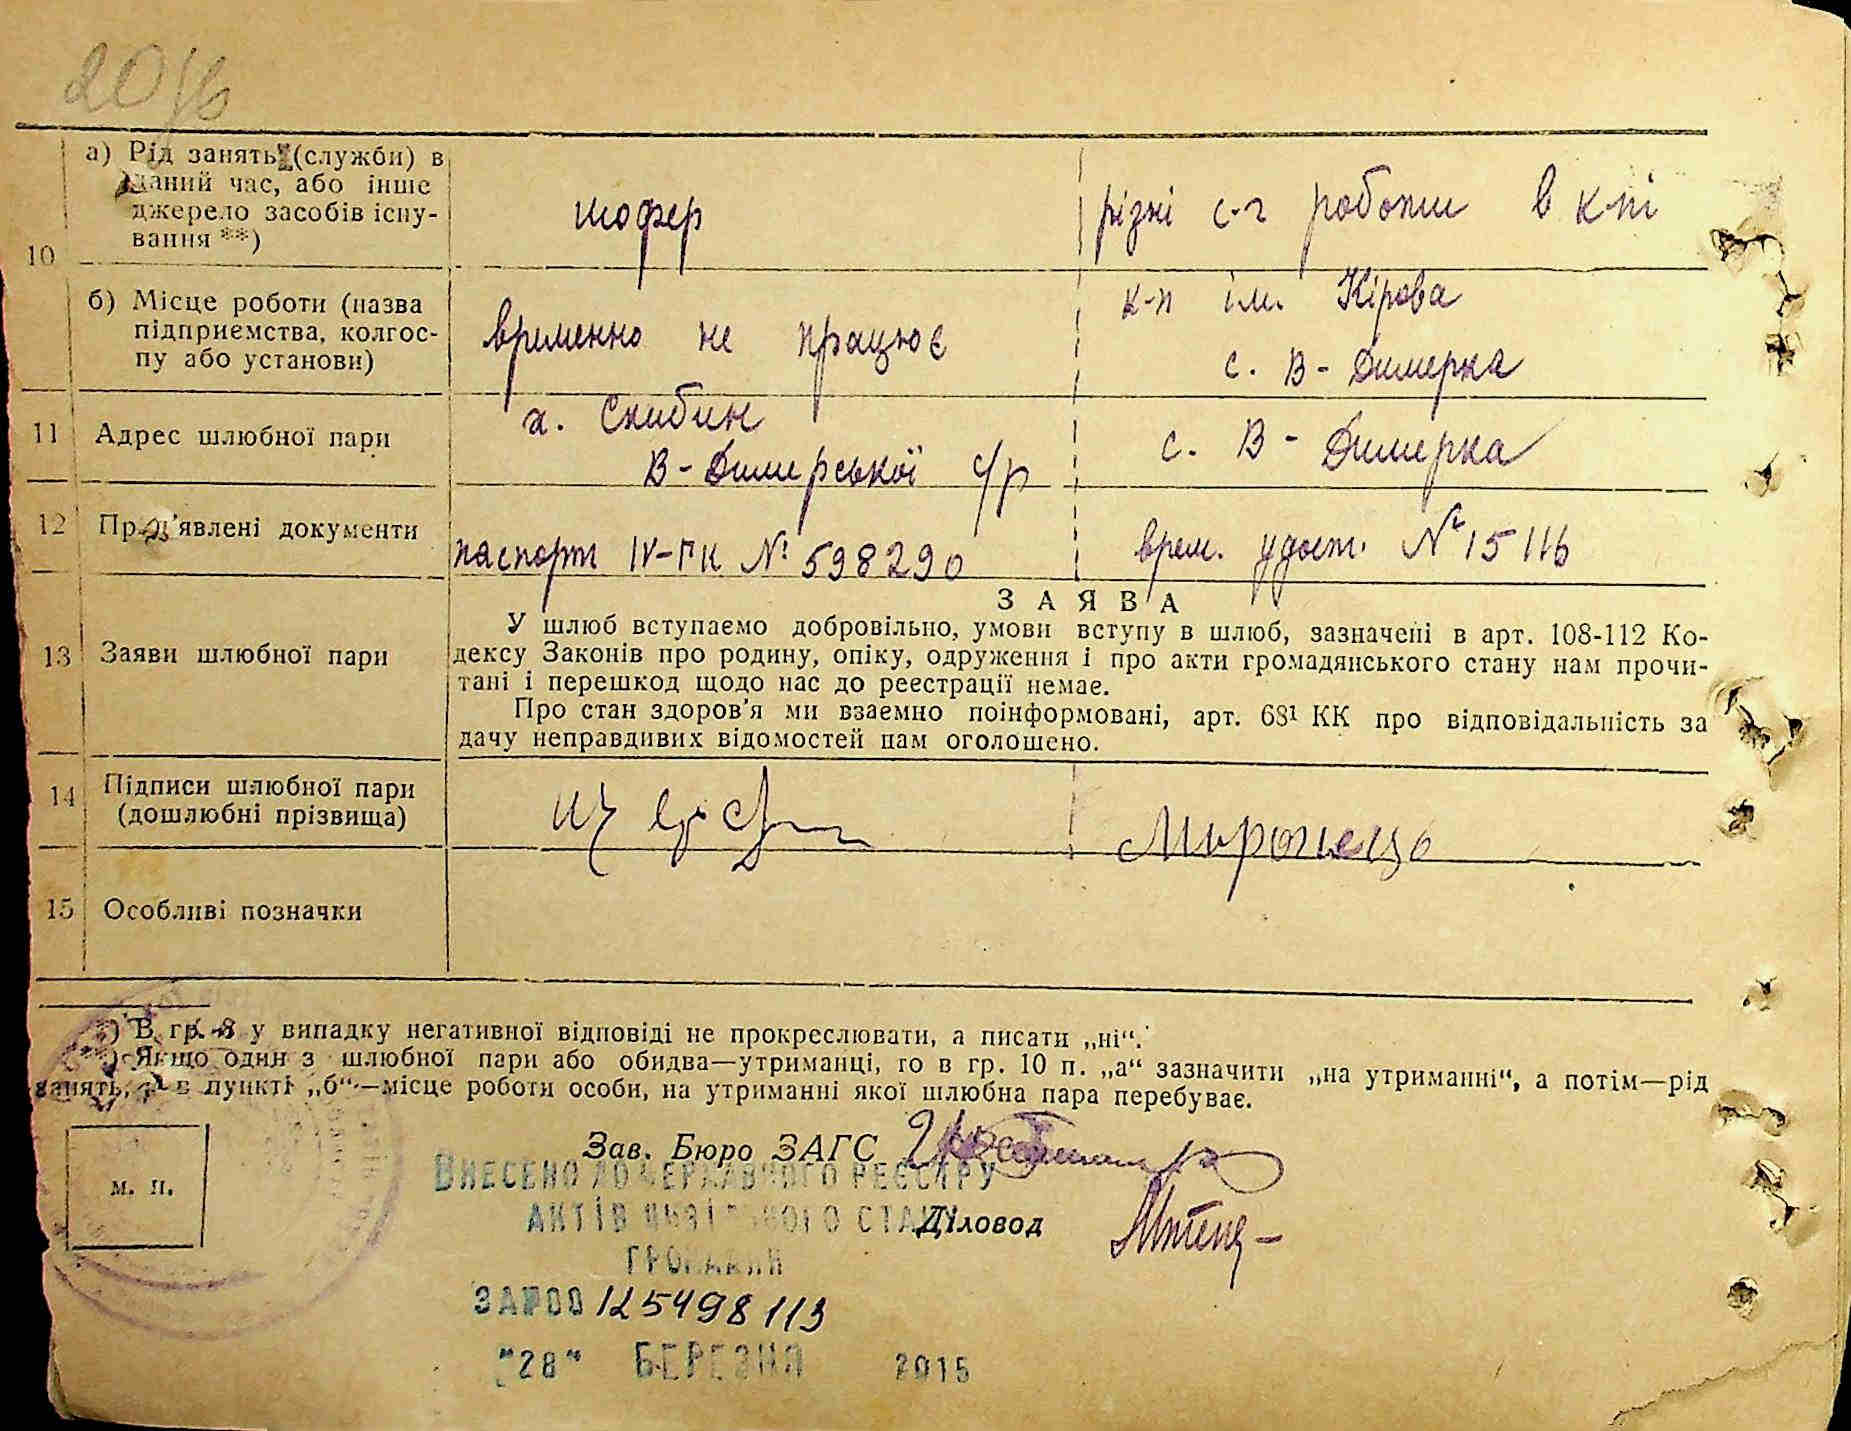 а) Рід занять (служби) в
даний час, або інше
джерело засобів існу-
вання **)
шофер
різні с-г роботи в к-пі
10
б) Місце роботи (назва
підприємства, колгос-
пу або установи)
временно не працює
к-п ім. Кірова
с. В-Димерка
11 Адрес шлюбної пари
х. Скибин
В-Димерської с/р
с. В-Димерка
12 Пред'явлені документи
паспорт IV-ГК № 598290
врем. удост. № 15116
13 Заяви шлюбної пари
ЗАЯВА
У шлюб вступаємо добровільно, умови вступу в шлюб, зазначені в арт. 108-112 Ко-
дексу Законів про родину, опіку, одруження і про акти громадянського стану нам прочи-
тані і перешкод щодо нас до реєстрації немає.
Про стан здоров'я ми взаємно поінформовані, арт. 68¹ КК про відповідальність за
дачу неправдивих відомостей нам оголошено.
14 Підписи шлюбної пари
(дошлюбні прізвища)
Миронець
15 Особливі позначки
*) В гр. 8 у випадку негативної відповіді не прокреслювати, а писати „ні“.
**) Якщо один з шлюбної пари або обидва—утриманці, то в гр. 10 п. „а“ зазначити „на утриманні“, а потім—рід
занять, а в пункті „б“—місце роботи особи, на утриманні якої шлюбна пара перебуває.
Зав. Бюро ЗАГС
м. п.
ВНЕСЕНО ДО ДЕРЖАВНОГО РЕЄСТРУ
АКТІВ ЦИВІЛЬНОГО СТАНУ
Діловод
ГРОМАДЯН
ЗА №00125498113
"28" БЕРЕЗНЯ 2015